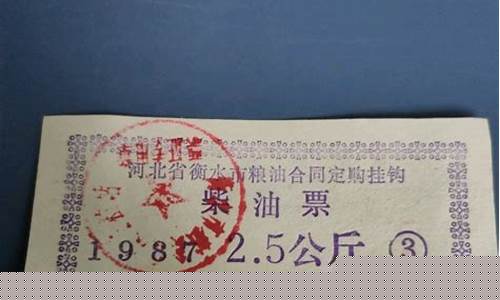 河北省衡水市粮油合同定购挂钩
柴油票
1987 2.5公斤 ③